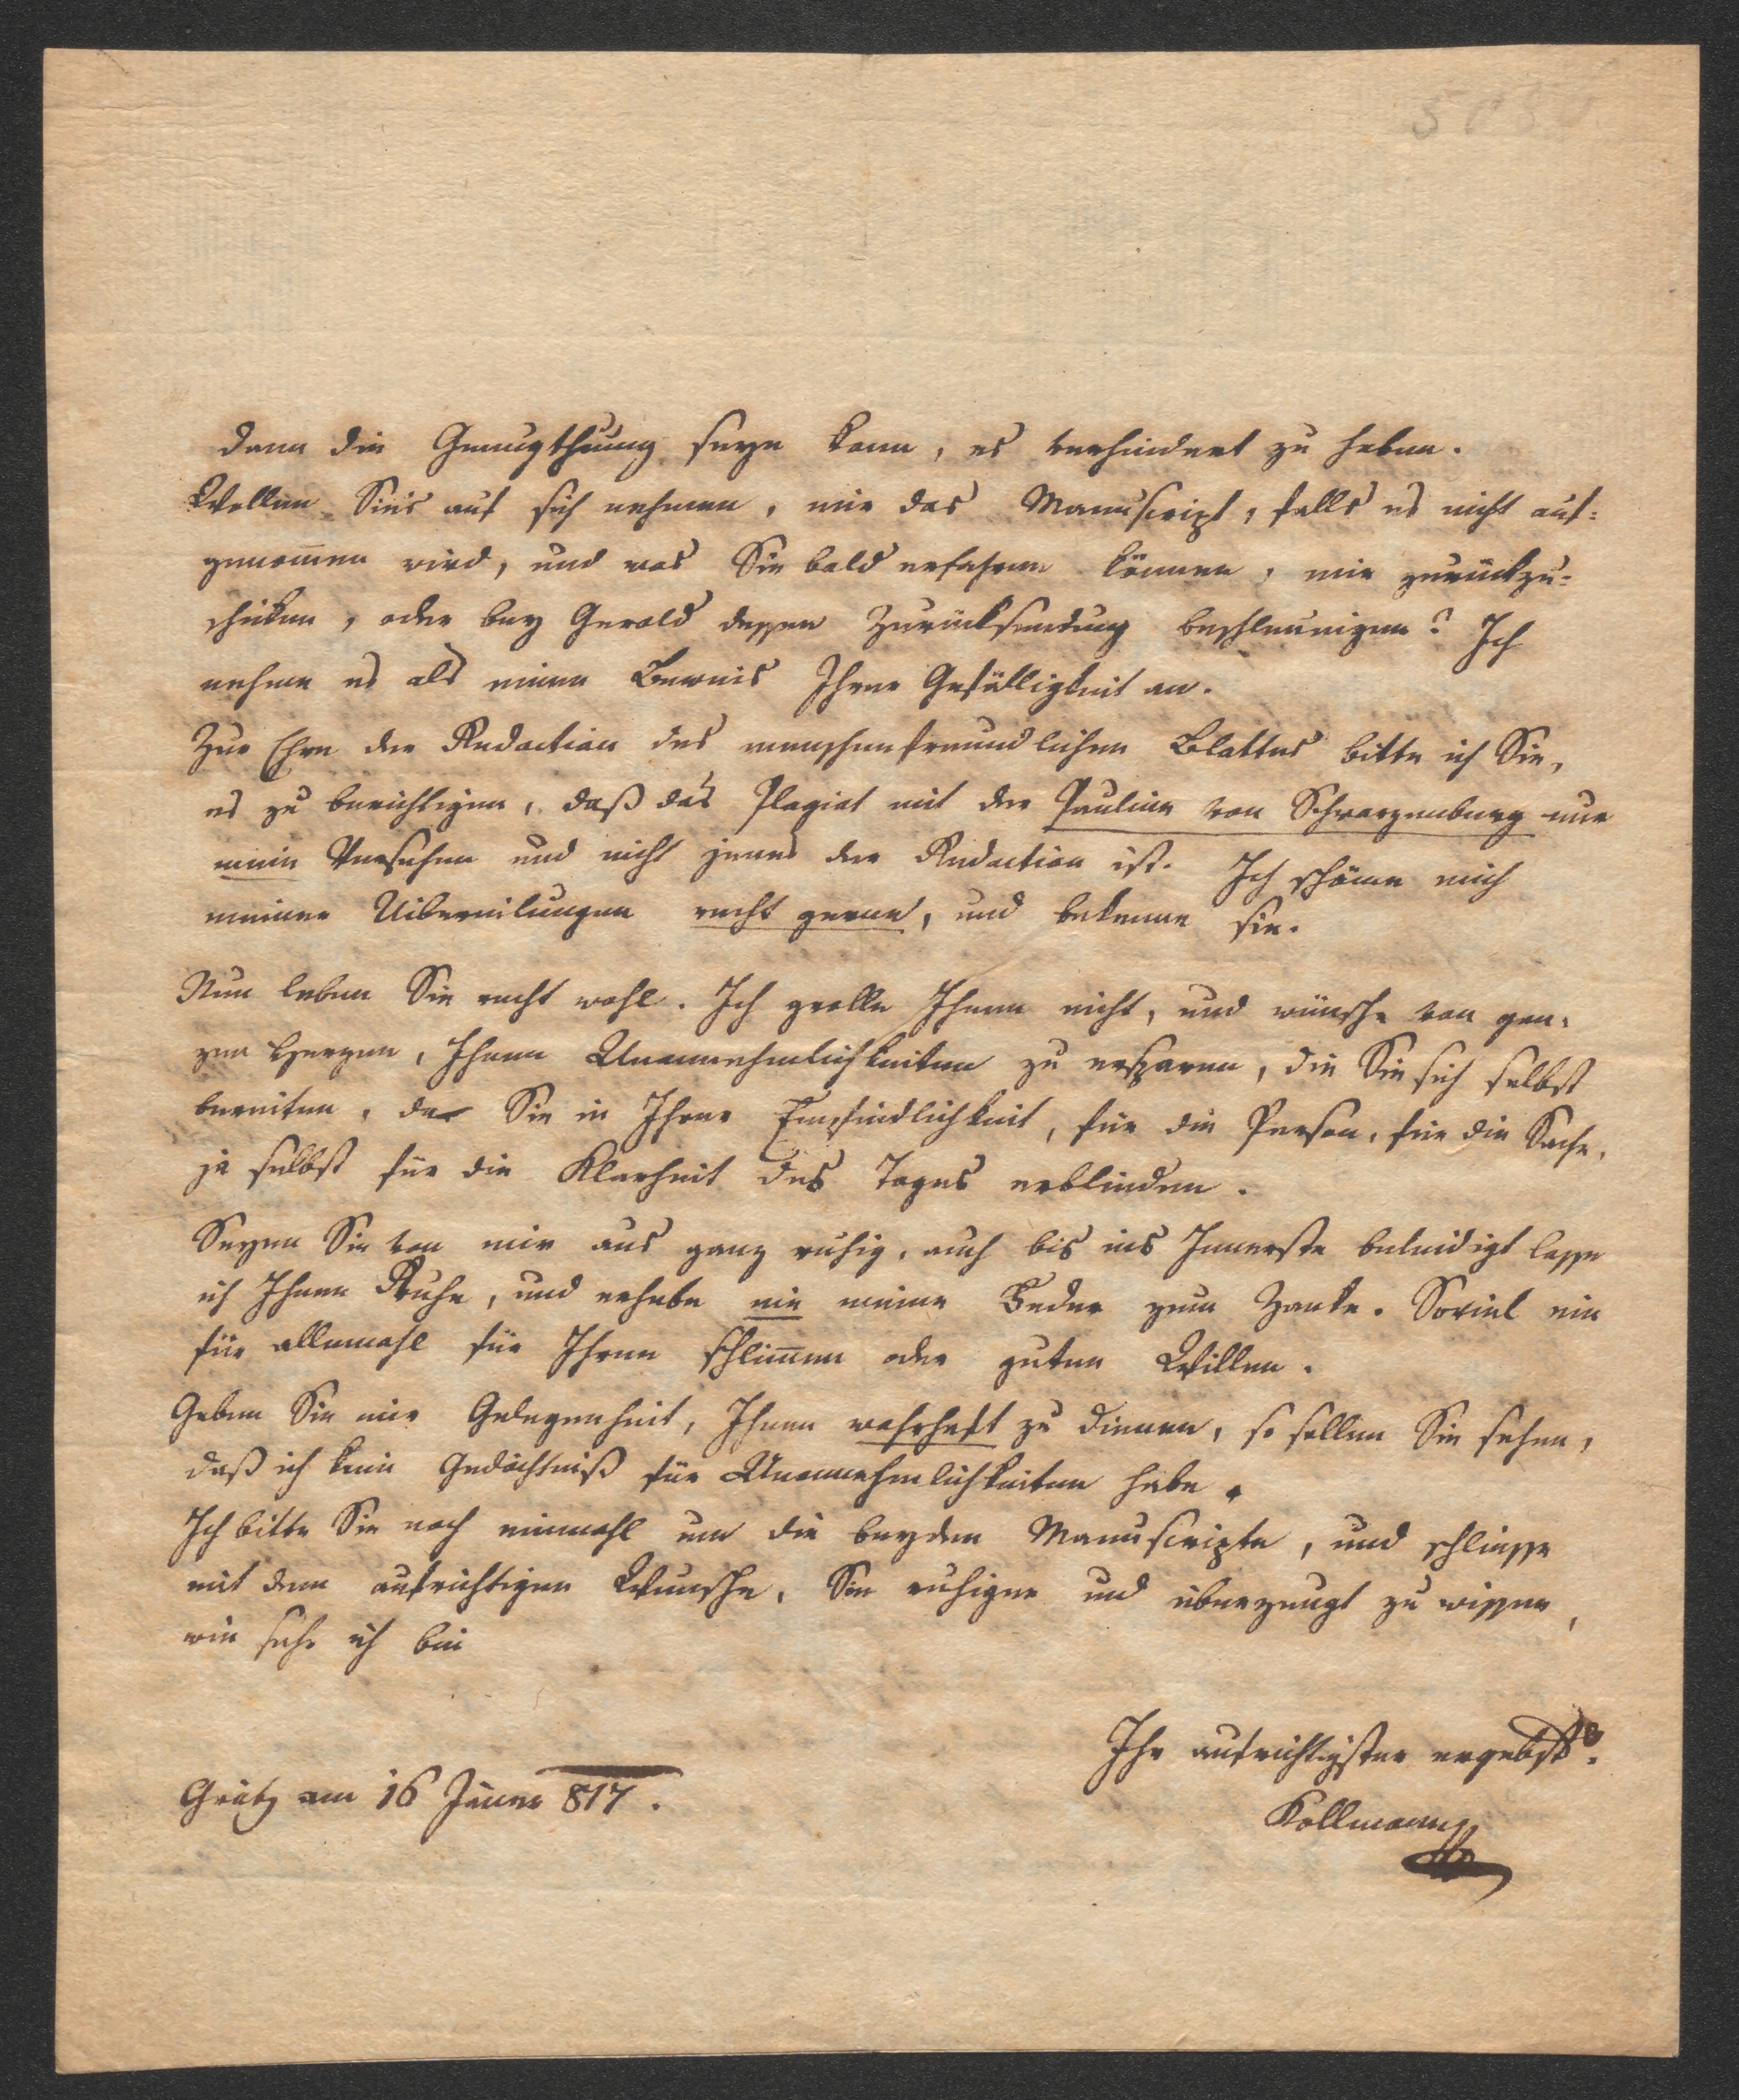 dann die Genugthuung seyn kann, es verhindert zu haben.
Wollen Sie's auf sich nehmen, mir das Manuscript, falls es nicht auf-
genom̅en wird, und was Sie bald erfahren können, mir zurückzu-
schicken, oder bey Gerold dessen Zurücksendung beschleunigen? Ich
nehme es als einen Beweis Ihrer Gefälligkeit an.
Zur Ehre der Redaction des menschenfreundlichen Blattes bitte ich Sie,
es zu berichtigen, daß das Plagiat mit der Pauline von Schwarzenburg nur
mein Versehen und nicht jenes der Redaction ist. Ich schäme mich
meiner Uibereilungen recht gerne, und bekenne sie.
Nun leben Sie recht wohl. Ich grolle Ihnen nicht, und wünsche von gan-
zen Herzen, Ihnen Unannehmlichkeiten zu ersparen, die Sie sich selbst
bereiten, da Sie in Ihrer Empfindlichkeit, für die Person, für die Sache,
ja selbst für die Klarheit des Tages erblinden.
Seyen Sie von mir aus ganz ruhig, auch bis ins Innerste beleidigt lasse
ich Ihnen Ruhe, und erhebe nie meine Feder zum Zanke. Soviel ein
für allemahl für Ihren schlim̅en oder guten Willen.
Geben Sie mir Gelegenheit, Ihnen wahrhaft zu dienen, so sollen Sie sehen,
daß ich kein Gedächtniß für Unannehmlichkeiten habe.
Ich bitte Sie noch einmahl um die beyden Manuscripte, und schliesse
mit dem aufrichtigen Wunsche, Sie ruhiger und überzeugt zu wissen,
wie sehr ich bin
Ihr aufrichtigster ergebstr.
Grätz am 16 Jäner 817.
Kollmann